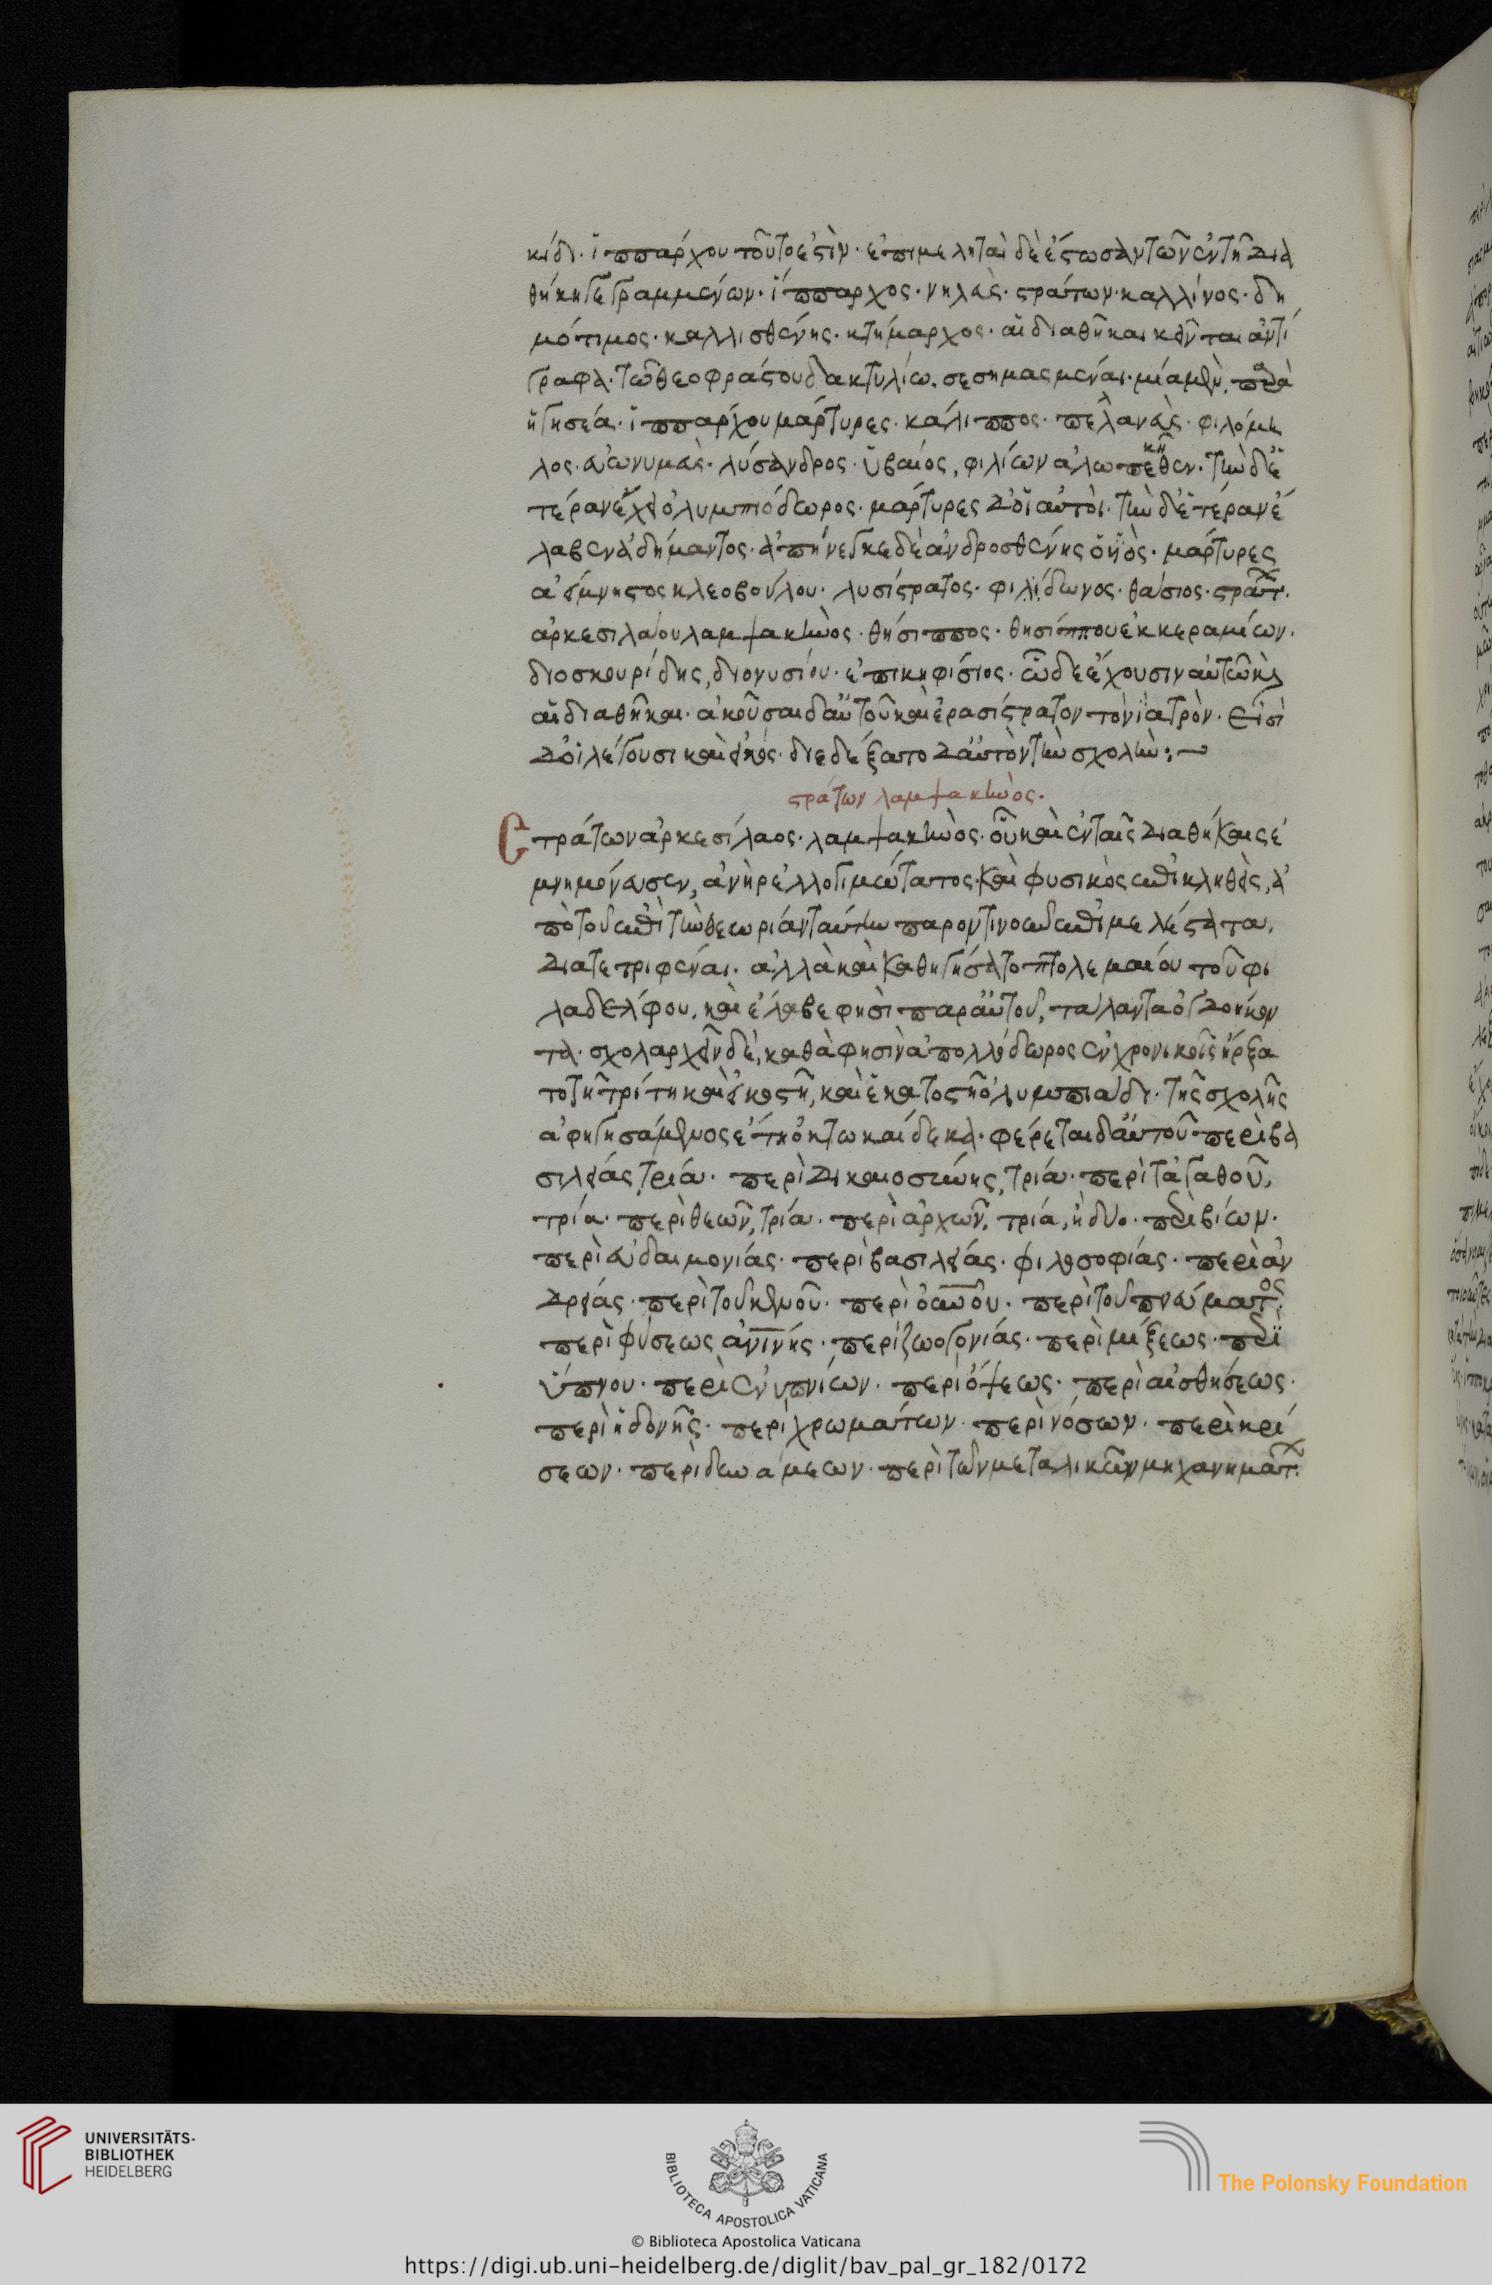 κίδι. ἱππάρχου τοῦτο ἐστὶν. ἐπιμεληταὶ δὲ ἔστωσαν τῶν ἐν τῇ δια
θήκη γεγραμμένων. ἵππαρχος. νηλεὺς. στράτων. καλλίνος. δη
μότιμος. καλλισθένης. κτήμαρχος. αἱ διαθῆκαι κεῖνται ἀντί
γραφα. τῶ θεοφράστου δακτυλίω. σεσημασμέναι. μία μὲν, παρὰ
ἡγησία. ἱππάρχου μάρτυρες. κάλιππος. πελανεὺς. φιλόμη
λος. εὐωνυμεὺς. λύσανδρος. ὑβαῖος, φιλίων ἀλωπεκῆθεν. τὴν δ' ἑ
τέραν ἔχει ὀλυμπιόδωρος. μάρτυρες δ' οἱ αὐτοὶ. τὴν δ' ἑτέραν ἔ
λαβεν ἀδήμαντος. ἀπήνεγκε δὲ ἀνδροσθένης ὁ υἱὸς. μάρτυρες
ἀείμνηστος κλεοβούλου. λυσίστρατος. φιλείδωνος. θάσιος. στράτων.
ἀρκεσιλάου λαμψακηνὸς. θήσιππος. θησίππου ἐκ κεραμέων.
διοσκουρίδης, διονυσίου. ἐπικηφίσιος. ὧδε ἔχουσιν αὐτῶ καὶ
αἱ διαθῆκαι. ἀκοῦσαι δ' αὐτοῦ καὶ ἐρασίστρατον τὸν ἰατρὸν. εἰσὶ
δ' οἳ λέγουσι καὶ εἰκός. διεδέξατο δ' αὐτὸν τὴν σχολὴν:
στράτων λαμψακηνὸς.
Στράτων ἀρκεσίλαος. λαμψακηνὸς. οὗ καὶ ἐν ταῖς διαθήκαις ἐ
μνημόνευσεν, ἀνὴρ ἐλλογιμώτατος. καὶ φυσικὸς ἐπικληθεὶς, ἀ
πὸ τοῦ ἐπὶ τὴν θεωρίαν ταύτην παρ' ὁντινοοῦν ἐπιμελέστατα,
διατετριφέναι. ἀλλὰ καὶ καθηγήσατο πτολεμαίου τοῦ φι
λαδέλφου. καὶ ἔλαβε φησὶ παρ' αὐτοῦ, τάλαντα ὀγδοήκον
τα. σχολαρχεῖν δὲ, καθὰ φησὶν ἀπολλόδωρος ἐν χρονικοῖς ἤρξα
το τῆ τρίτη καὶ εἰκοστῆ, καὶ ἑκατοστῆ ὀλυμπιάδι. τῆς σχολῆς
ἀφηγησάμενος ἔτη ὀκτωκαίδεκα. φέρεται δ' αὐτοῦ περὶ βα
σιλείας, τρία. περὶ δικαιοσύνης, τρία. περὶ τἀγαθοῦ,
τρία. περὶ θεῶν, τρία. περὶ ἀρχῶν, τρία, ἢ δύο. περὶ βίων.
περὶ εὐδαιμονίας. περὶ βασιλείας. φιλοσοφίας. περὶ ἀν
δρείας. περὶ τοῦ κενοῦ. περὶ οὐνοῦ. περὶ τοῦ πνεύματος.
περὶ φύσεως ἀνίνης. περὶ ζωογονίας. περὶ μίξεως. περὶ
ὕπνου. περὶ ἐνυπνίων. περὶ ὄψεως. περὶ αἰσθήσεως.
περὶ ἡδονῆς. περὶ χρωμάτων. περὶ νόσων. περὶ κρί
σεων. περὶ δυνάμεων. περὶ τῶν μεταλικῶν μηχανημάτων.
UNIVERSITÄTS-
BIBLIOTHEK
HEIDELBERG
BIBLIOTECA APOSTOLICA VATICANA
The Polonsky Foundation
© Biblioteca Apostolica Vaticana
https://digi.ub.uni-heidelberg.de/diglit/bav_pal_gr_182/0172